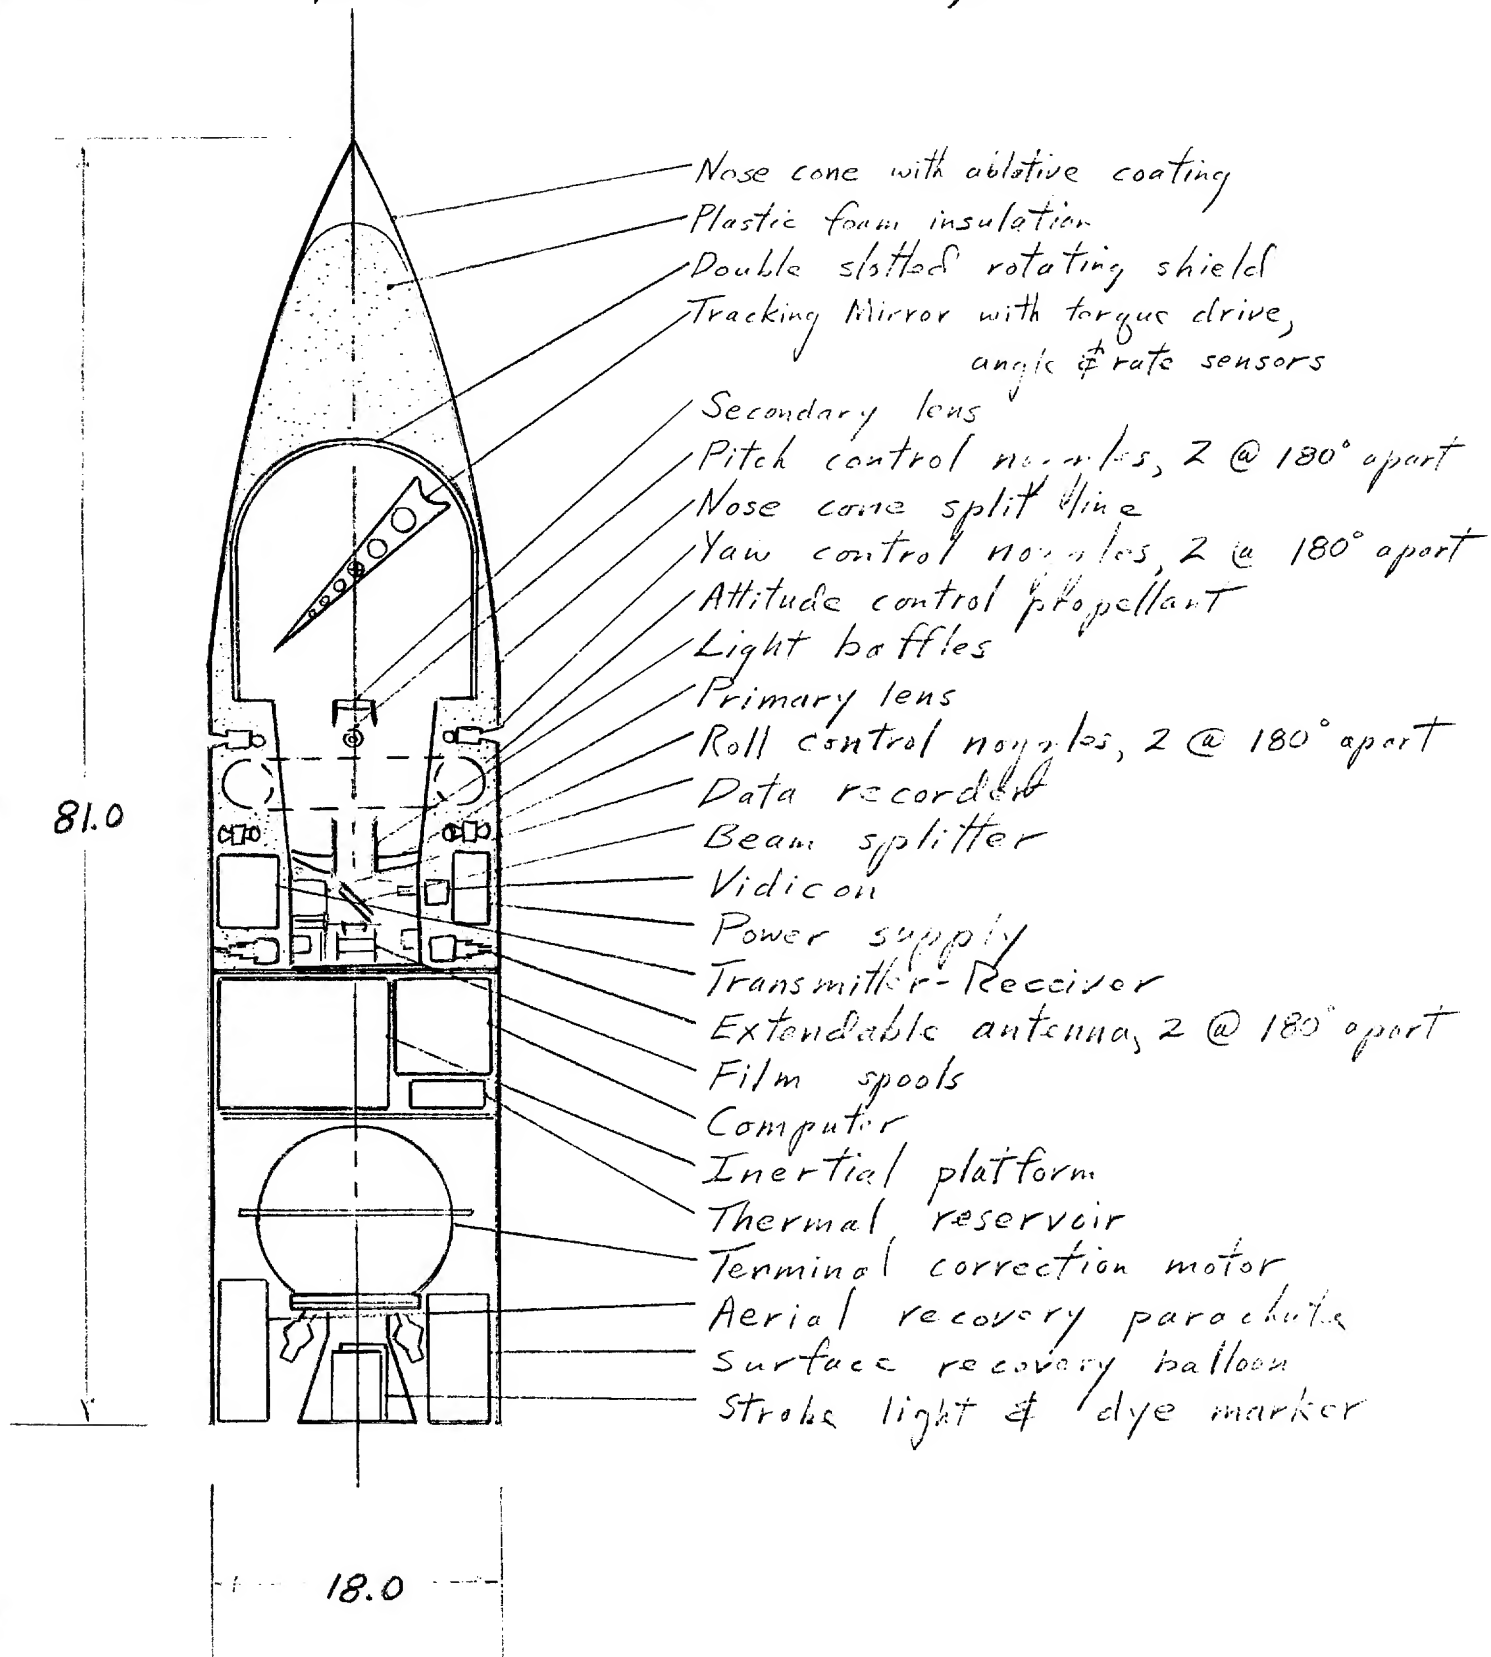 Nose cone with ablative coating
Plastic foam insulation
Double slotted rotating shield
Tracking Mirror with torque drive,
angle & rate sensors
Secondary lens
Pitch control nozzles, 2 @ 180° apart
Nose cone split line
Yaw control nozzles, 2 @ 180° apart
Attitude control propellant
Light baffles
Primary lens
Roll control nozzles, 2 @ 180° apart
Data recorder
Beam splitter
Vidicon
Power supply
Transmitter-Receiver
Extendable antenna, 2 @ 180° apart
Film spools
Computer
Inertial platform
Thermal reservoir
Terminal correction motor
Aerial recovery parachute
Surface recovery balloon
Strobe light & dye marker
81.0
18.0